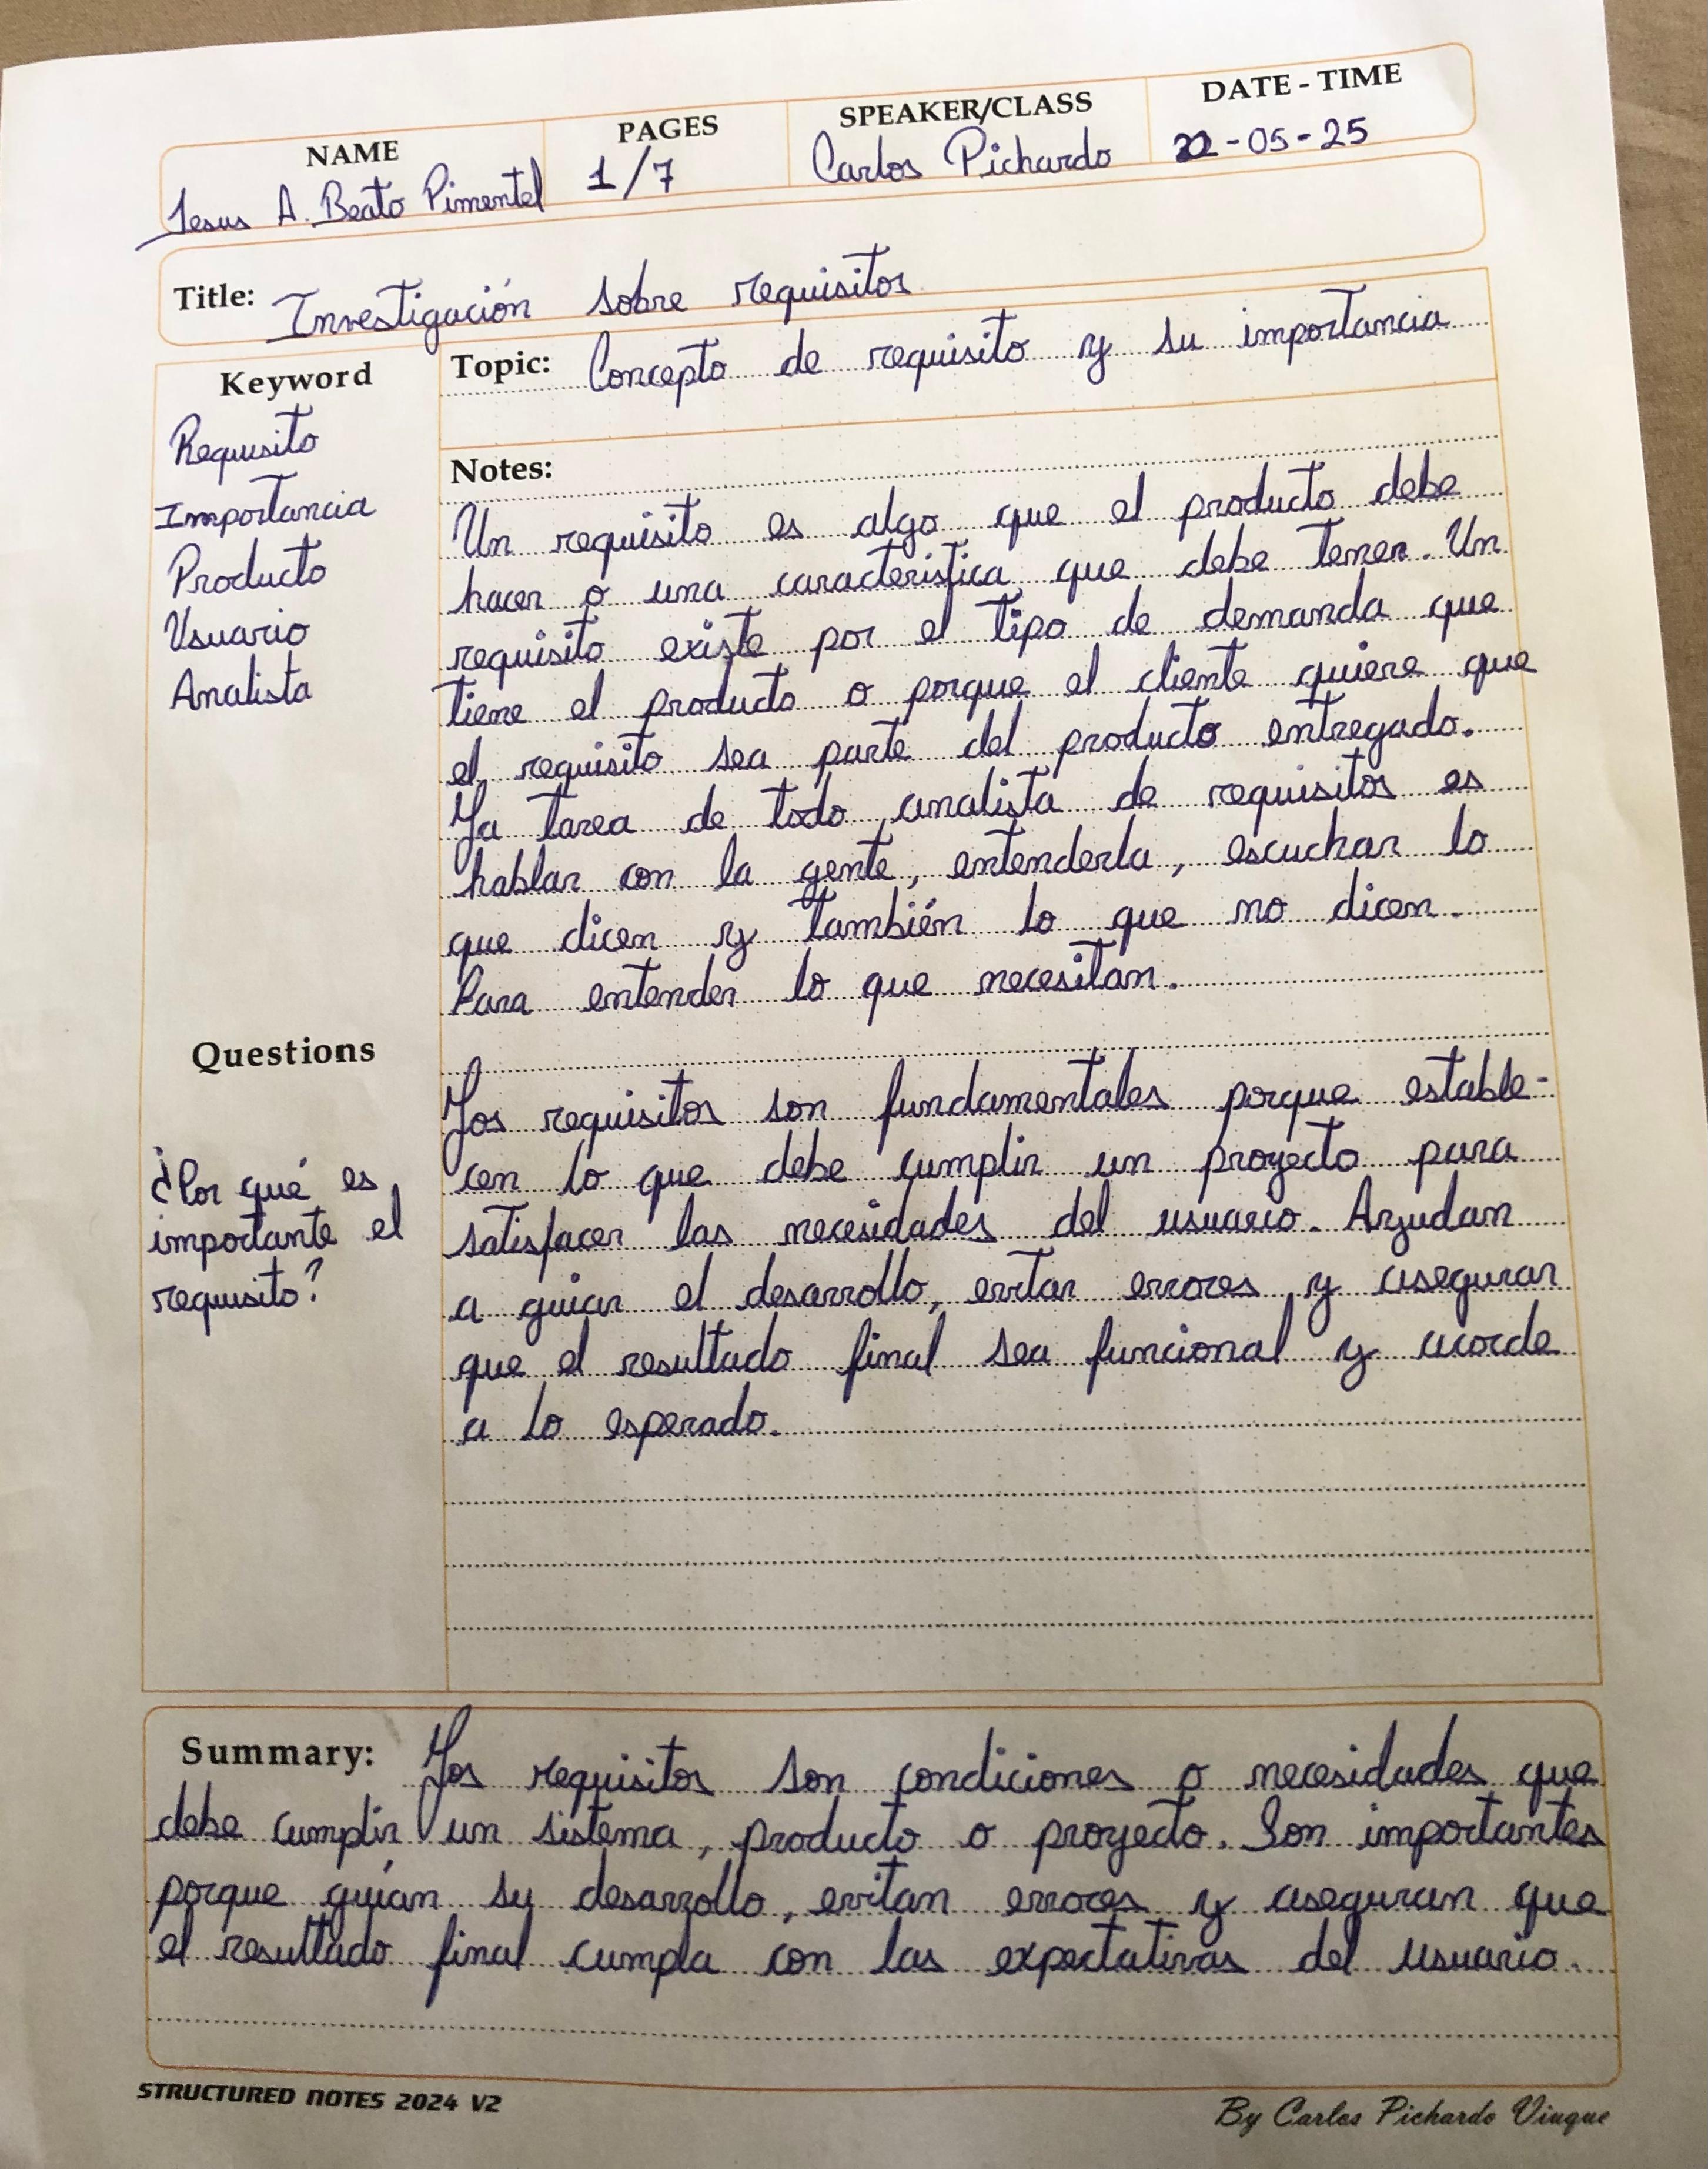 NAME PAGES SPEAKER/CLASS DATE - TIME
Jesus A. Beato Pimentel 1/7 Carlos Pichardo 22-05-25
Title: Investigación sobre requisitos
Keyword
Requisito
Importancia
Producto
Usuario
Analista
Topic: Concepto de requisito y su importancia
Notes:
Un requisito es algo que el producto debe
hacer o una caracteristica que debe tener. Un
requisito existe por el tipo de demanda que
tiene el producto o porque el cliente quiere que
el requisito sea parte del producto entregado.
La tarea de todo analista de requisitos es
hablar con la gente, entenderla, escuchar lo
que dicen y también lo que no dicen.
Para entender lo que necesitan.
Questions
¿Por qué es
importante el
requisito?
Los requisitos son fundamentales porque estable-
cen lo que debe cumplir un proyecto para
satisfacer las necesidades del usuario. Ayudan
a guiar el desarrollo, evitar errores y asegurar
que el resultado final sea funcional y acorde
a lo esperado.
Summary: Los requisitos son condiciones o necesidades que
debe cumplir un sistema, producto o proyecto. Son importantes
porque guían su desarrollo, evitan errores y aseguran que
el resultado final cumpla con las expectativas del usuario.
STRUCTURED NOTES 2024 V2
By Carlos Pichardo Viuque